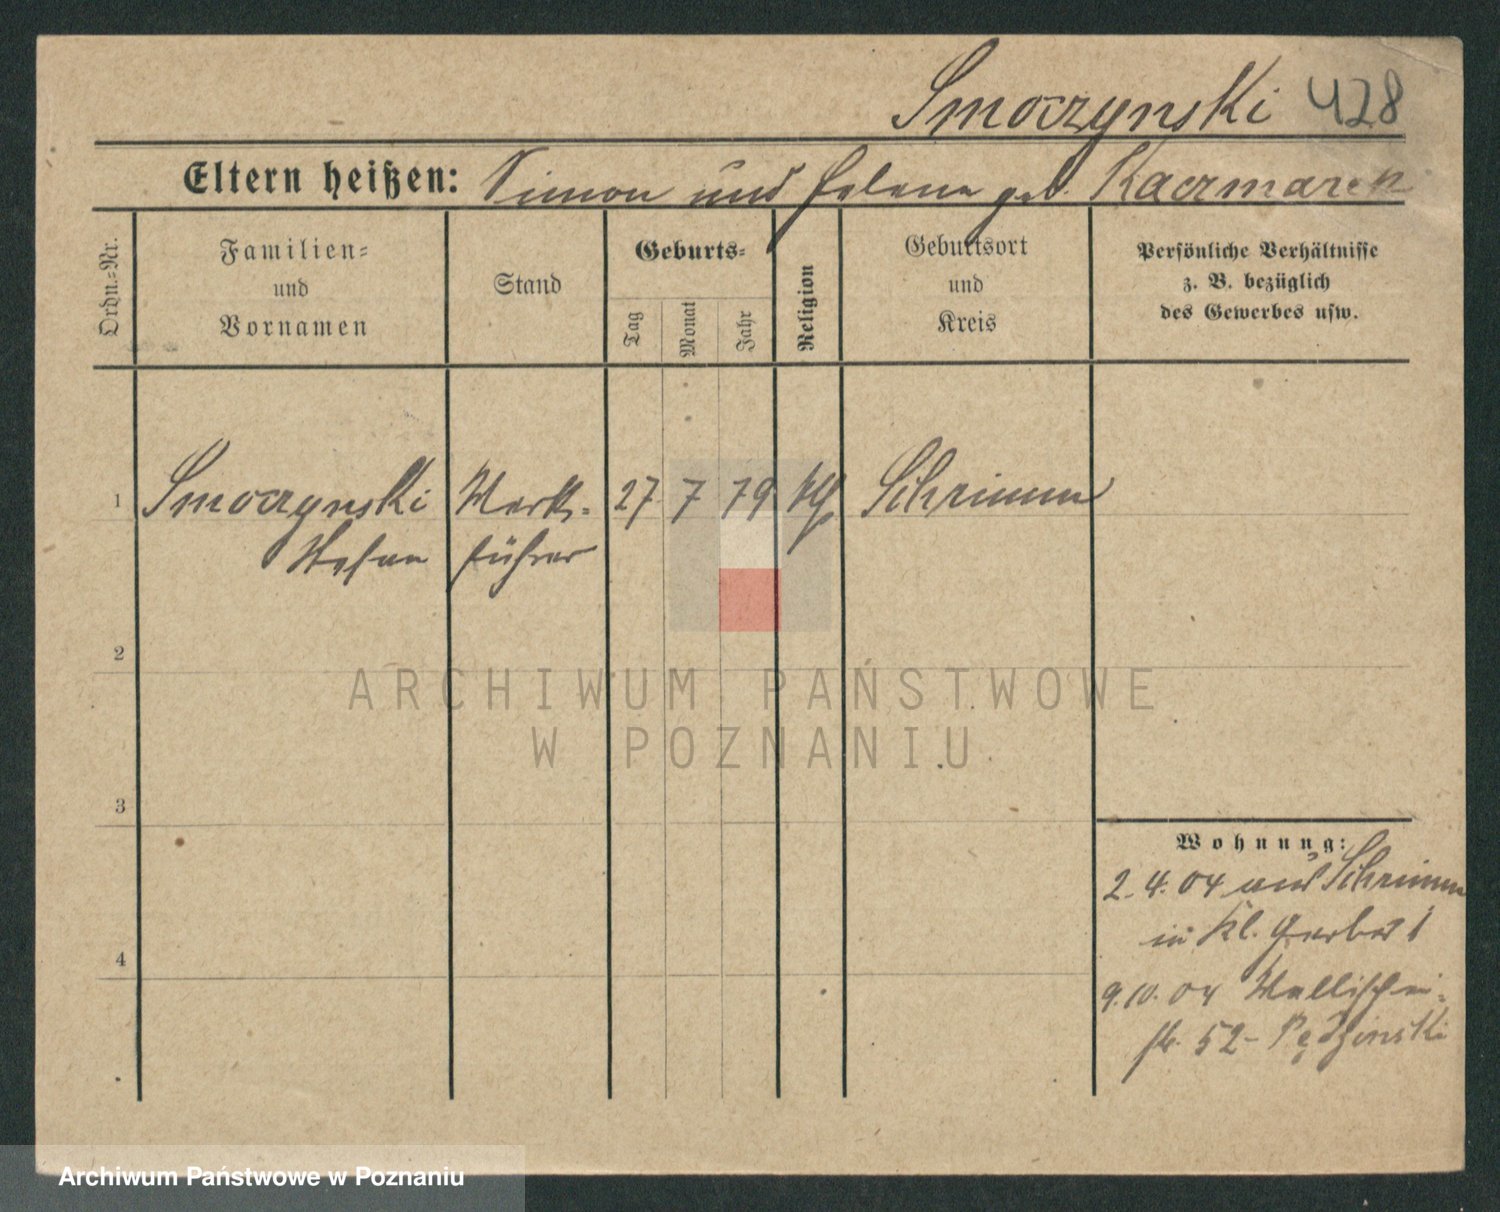 Smoczynski 428
Eltern heißen: Simon und Helena geb. Kaczmarek
Ordn.=Nr.
Familien=
und
Vornamen
Stand
Geburts=
Tag
Monat
Jahr
Religion
Geburtsort
und
Kreis
Persönliche Verhältnisse
z. B. bezüglich
des Gewerbes usw.
1 Smoczynski Werk- 27 7 79 kth Schrimm
Stefan führer
2
3
4
Wohnung:
2.4.04 aus Schrimm
in Kl. Gerber 1
9.10.04 Wallischei=
str. 52- Pędzinski
ARCHIWUM PAŃSTWOWE
W POZNANIU
Archiwum Państwowe w Poznaniu